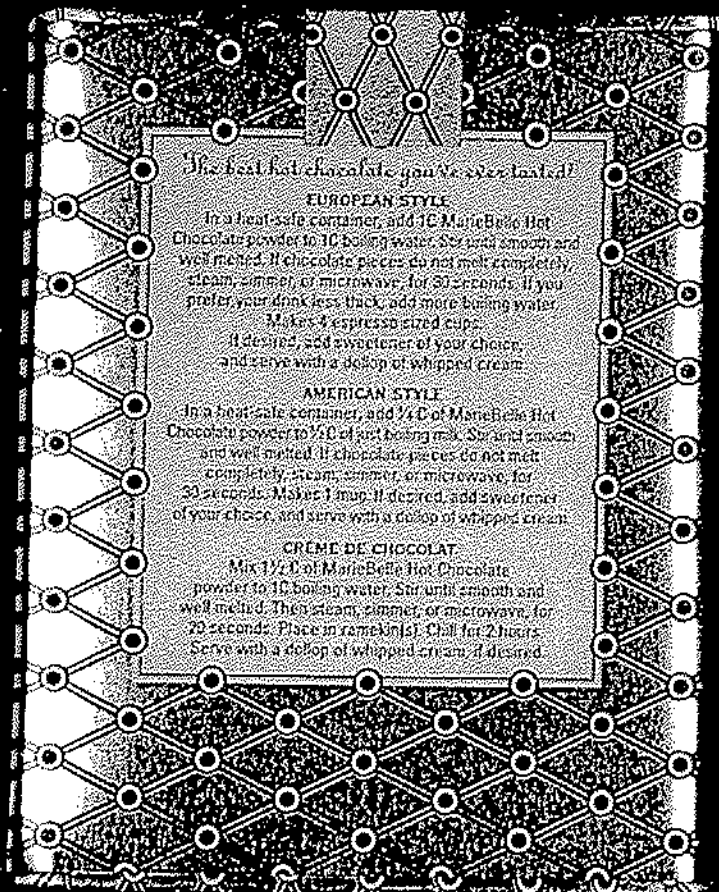 The best hot chocolate you've ever tasted!
EUROPEAN STYLE
In a heat-safe container, add 1C MarieBelle Hot
Chocolate powder to 1C boiling water. Stir until smooth and
well melted. If chocolate pieces do not melt completely,
steam, simmer, or microwave, for 30 seconds. If you
prefer your drink less thick, add more boiling water.
Makes 4 espresso sized cups.
If desired, add sweetener of your choice,
and serve with a dollop of whipped cream.
AMERICAN STYLE
In a heat-safe container, add C of MarieBelle Hot
Chocolate powder to C of just boiling milk. Stir until smooth
and well melted. If chocolate pieces do not melt
completely, steam, simmer, or microwave, for
30 seconds. Makes 1 mug. If desired, add sweetener
of your choice, and serve with a dollop of whipped cream.
CRÈME DE CHOCOLAT
Mix 1½ C of MarieBelle Hot Chocolate
powder to 1C boiling water. Stir until smooth and
well melted. Then steam, simmer, or microwave, for
seconds. Place in ramekin(s). Chill for 2 hours.
Serve with a dollop of whipped cream, if desired.